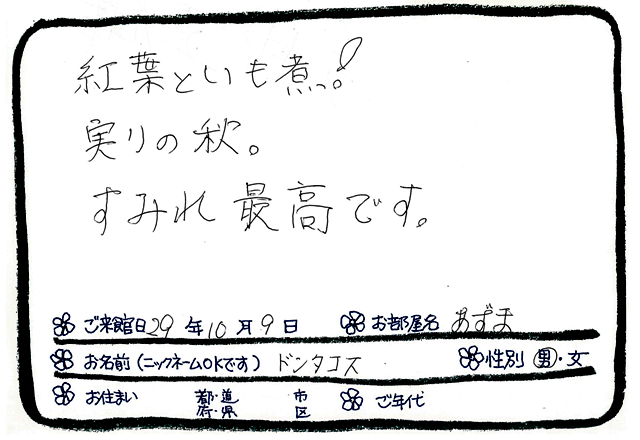 紅葉といも煮っ!
実りの秋。
すみれ最高です。
ご来館日29年10月9日 お部屋名 あずま
お名前(ニックネームOKです) ドンタコス 性別 男・女
お住まい 都・道 府・県 市 区 ご年代